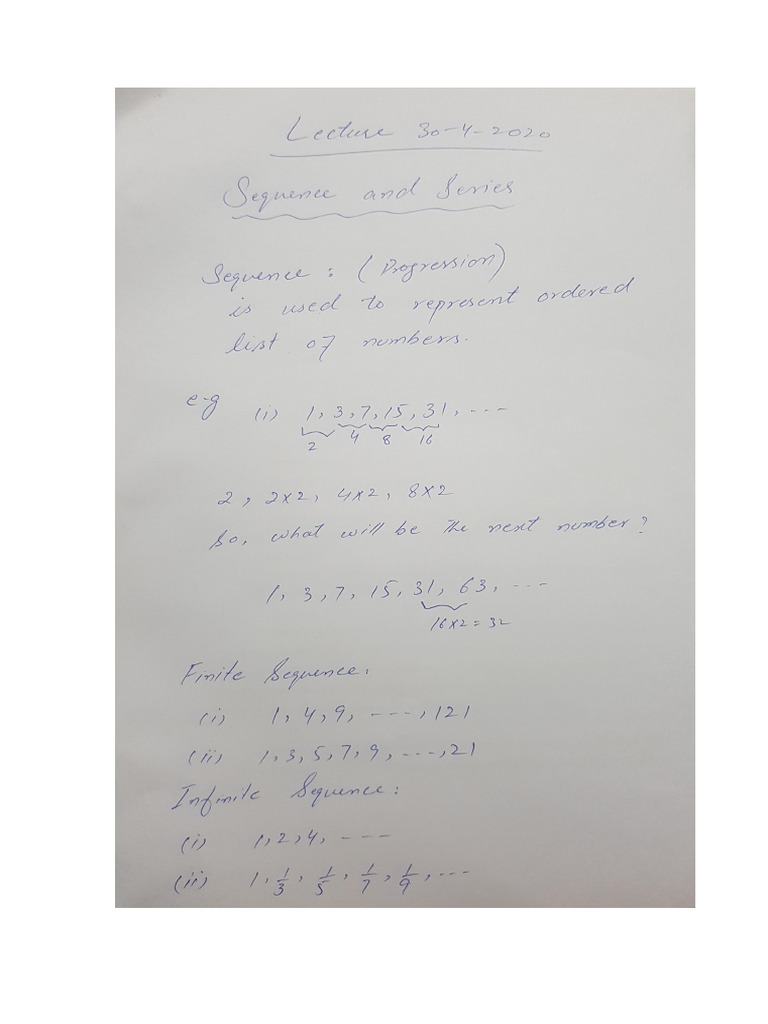 Lecture 30-4-2020
Sequence and Series
Sequence : (Progression)
is used to represent ordered
list of numbers.
e-g (i) 1, 3, 7, 15, 31, ---
2 4 8 16
2, 2x2, 4x2, 8x2
So, what will be the next number?
1, 3, 7, 15, 31, 63, ---
16x2 = 32
Finite Sequence:
(i) 1, 4, 9, ----, 121
(ii) 1, 3, 5, 7, 9, ---, 21
Infinite Sequence:
(i) 1, 2, 4, ---
(ii) 1, 1/3, 1/5, 1/7, 1/9, ---